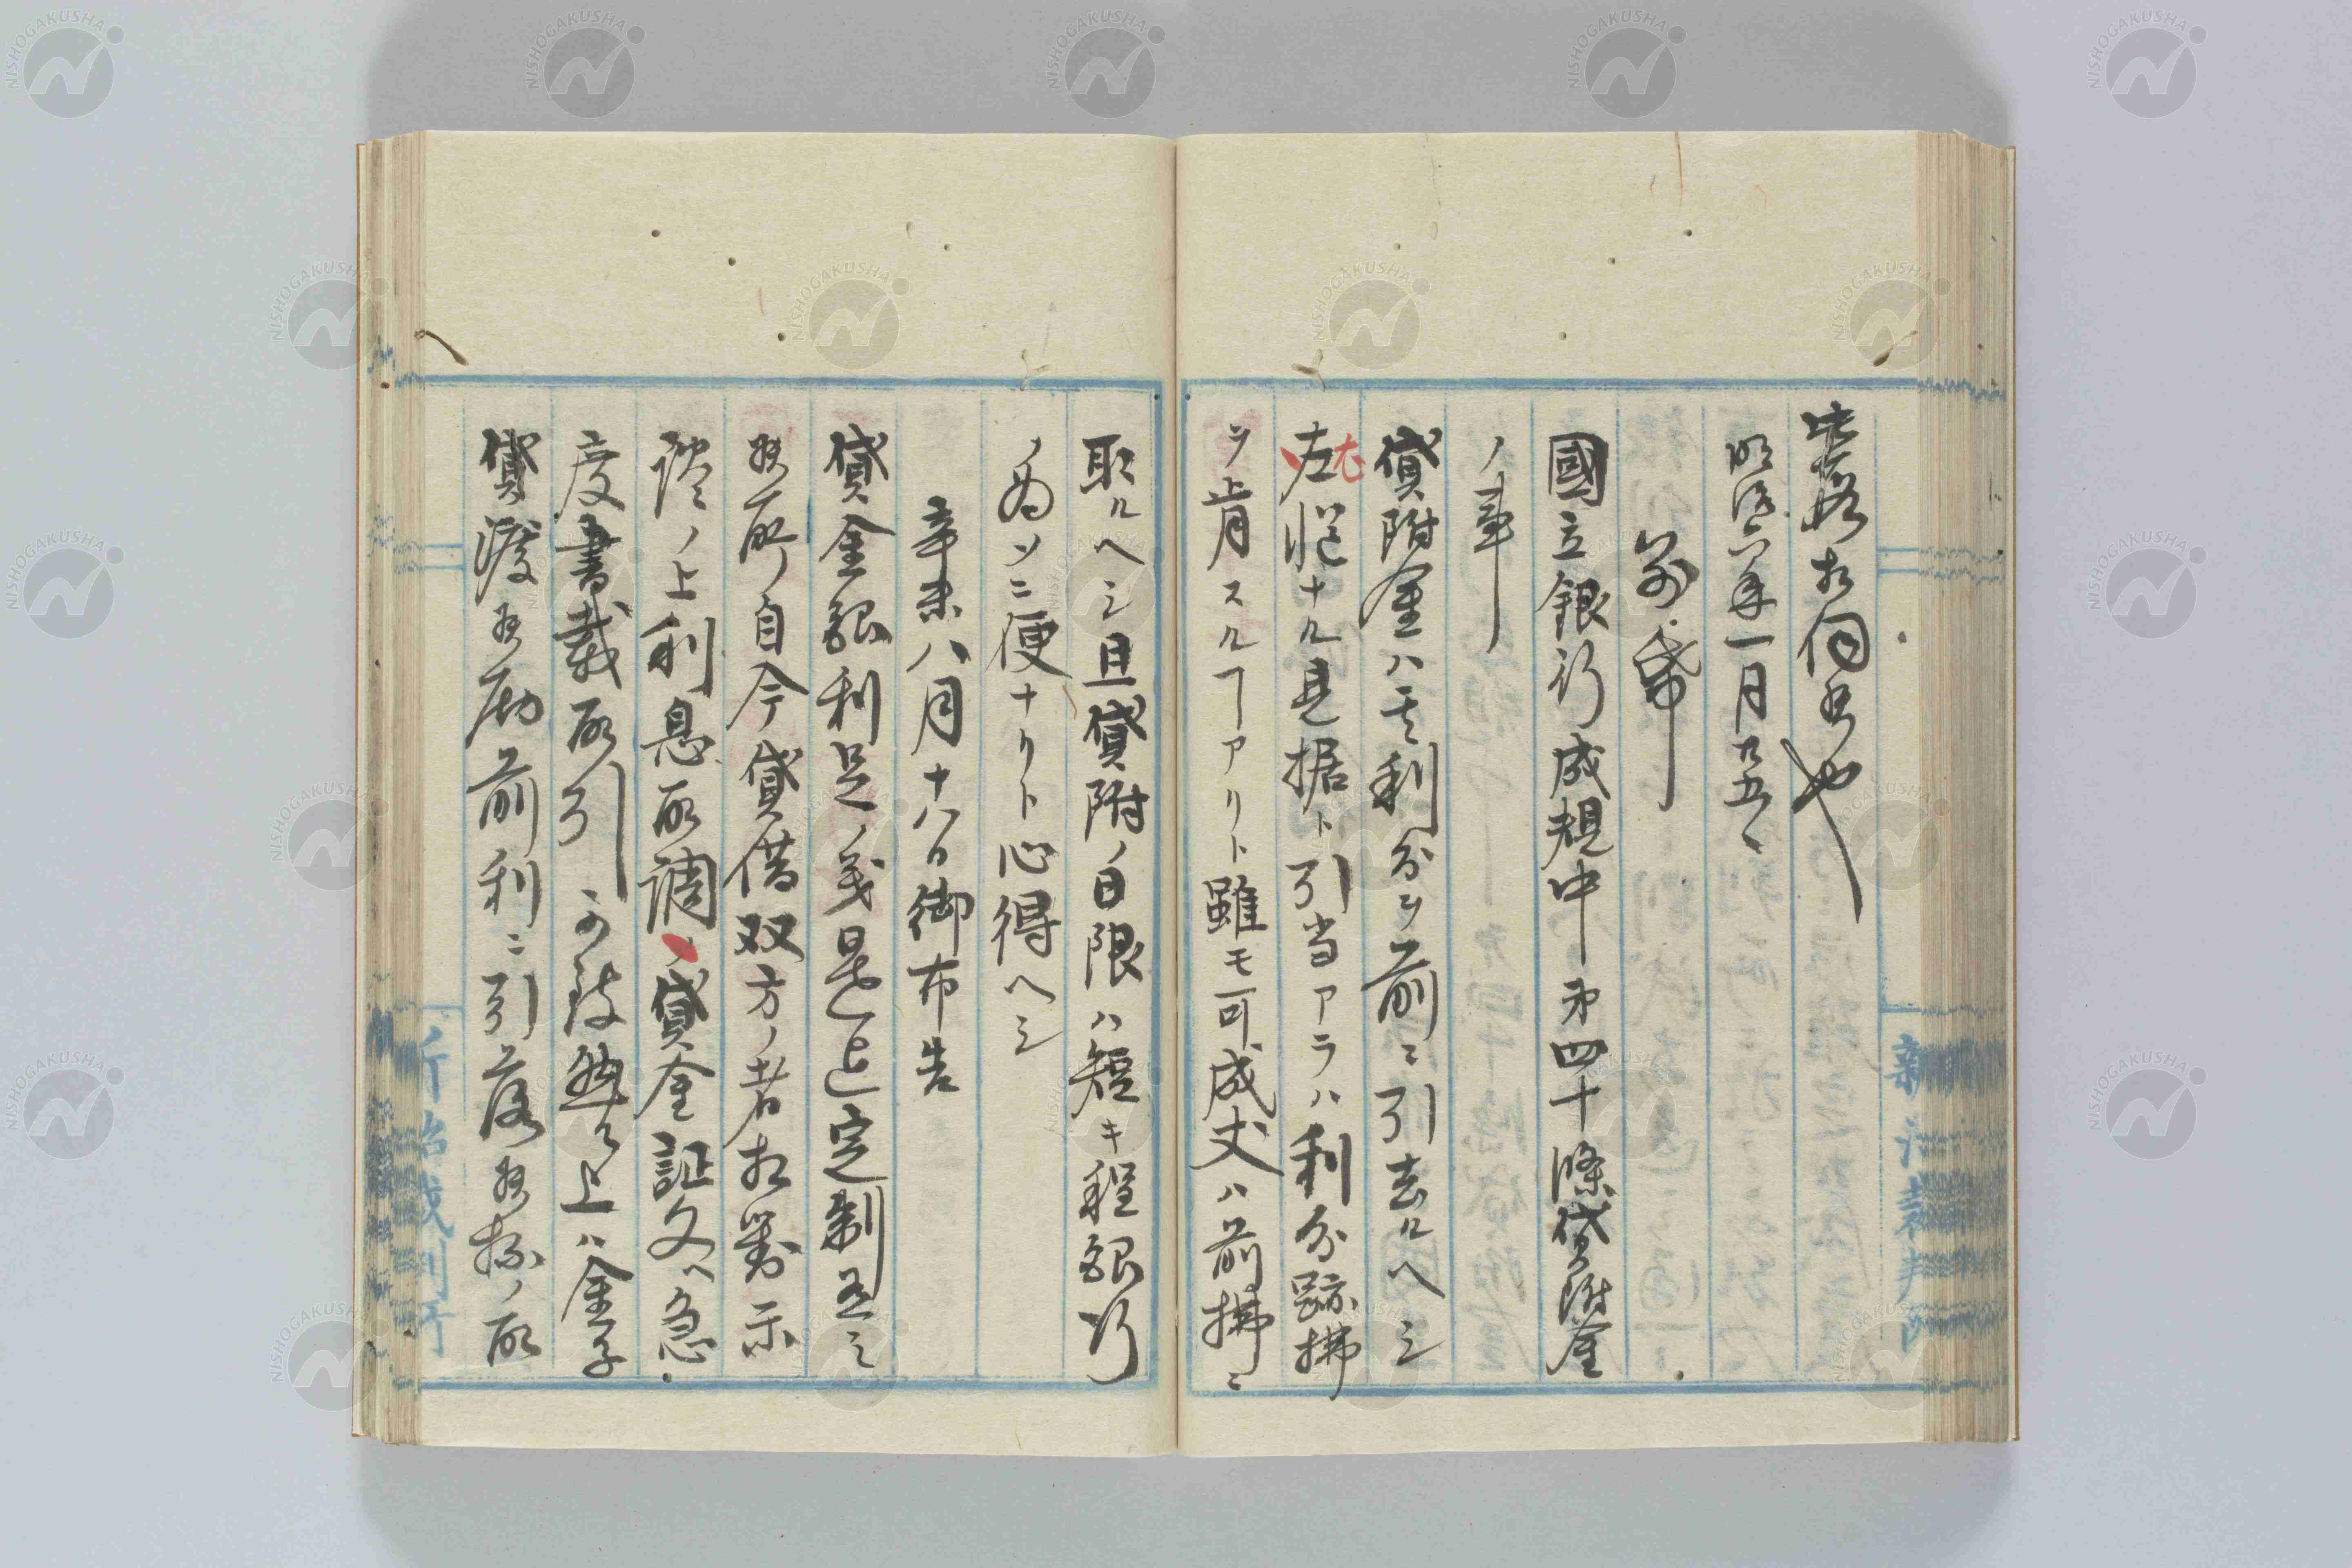 此段相伺候也
明治六年一月廿五日
別帋
國立銀行成規中第四十條貸附金
ノ事
貸附金ハ其利分ヲ前ニ引去ルヘシ
左程ナル見据ト引当アラハ利分跡拂
ヲ肯スルヿアリト雖モ可成丈ハ前拂ニ
取ルヘシ且貸附ノ日限ハ短キ程銀行
ノ為メニ便ナリト心得ヘシ
辛未八月十八日御布告
貸金銀利足ノ義是迄定制有之
候所自今貸借双方ノ者相對示
談ノ上利息取調貸金証文ヘ急
度書載取引可致然ル上ハ金子
貸渡候節前利ニ引落候抔ノ取
新治裁判所
NISHOGAKUSHA